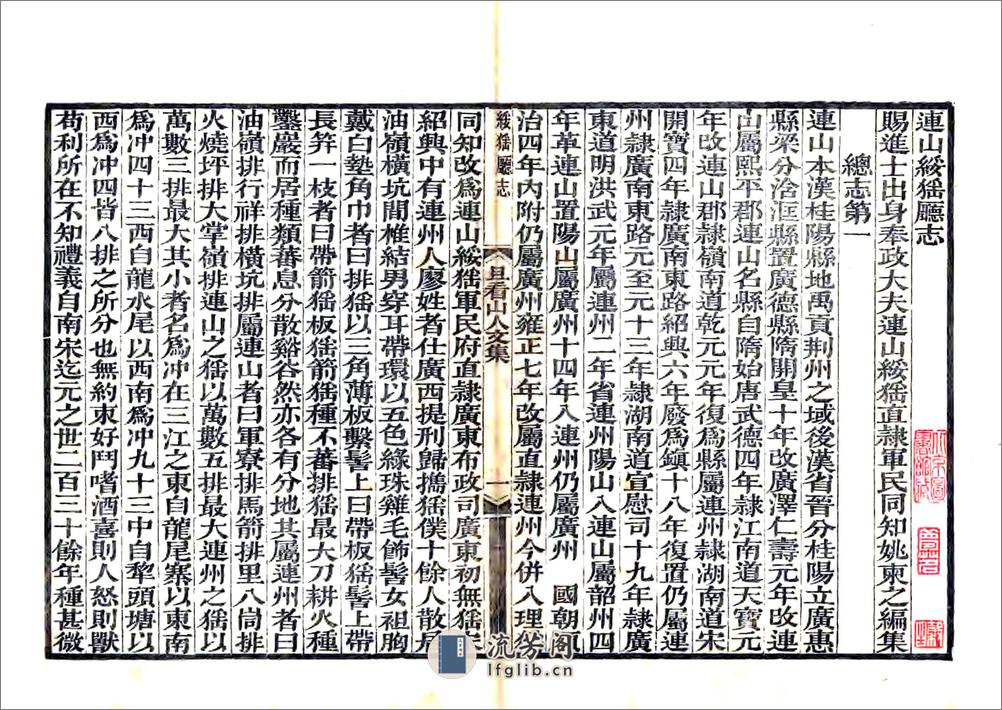 連山綏猺廳志
賜進士出身奉政大夫連山綏猺直隸軍民同知姚柬之編集
總志第一
連山本漢桂陽縣地禹貢荆州之域後漢省晉分桂陽立廣惠
縣梁分浛洭縣置廣德縣隋開皇十年改廣澤仁壽元年改連
山屬熙平郡連山名縣自隋始唐武德四年隸江南道天寶元
年改連山郡隸嶺南道乾元元年復爲縣屬連州隸湖南道宋
開寶四年隸廣南東路紹興六年廢爲鎮十八年復置仍屬連
州隸廣南東路元至元十三年隸湖南道宣慰司十九年隸廣
東道明洪武元年屬連州二年省連州陽山入連山屬韶州四
年革連山置陽山屬廣州十四年入連州仍屬廣州 國朝順
治四年內附仍屬廣州雍正七年改屬直隸連州今併入理
綏猺廳志
且看山人文集
一
同知改爲連山綏猺軍民府直隸廣東布政司廣東初無猺宋
紹興中有連州人廖姓者仕廣西提刑歸攜猺僕十餘人散居
油嶺橫坑間椎結男穿耳帶環以五色綠珠雞毛飾髻女袒胸
戴白墊角巾者曰排猺以三角薄板繫髻上曰帶板猺髻上帶
長筓一枝者曰帶箭猺板猺箭猺種不蕃排猺最大刀耕火種
鑿巖而居種類蕃息分散谿谷然亦各有分地其屬連州者曰
油嶺排行祥排橫坑排屬連山者曰軍寮排馬箭排里八峝排
火燒坪排大掌嶺排連山之猺以萬數五排最大連州之猺以
萬數三排最大其小者名爲冲在三江之東自龍尾寨以東南
爲冲四十三西自龍水尾以西南爲冲九十三中自犂頭塘以
西爲冲四皆八排之所分也無約束好鬥嗜酒喜則人怒則獸
苟利所在不知禮義自南宋迄元之世二百三十餘年種甚微
流芳阁
lfglib.cn